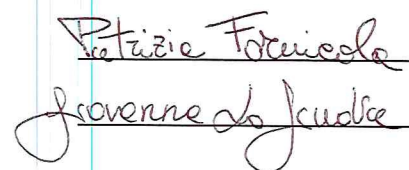 Patrizia Formicola
Giovanna Lo Giudice